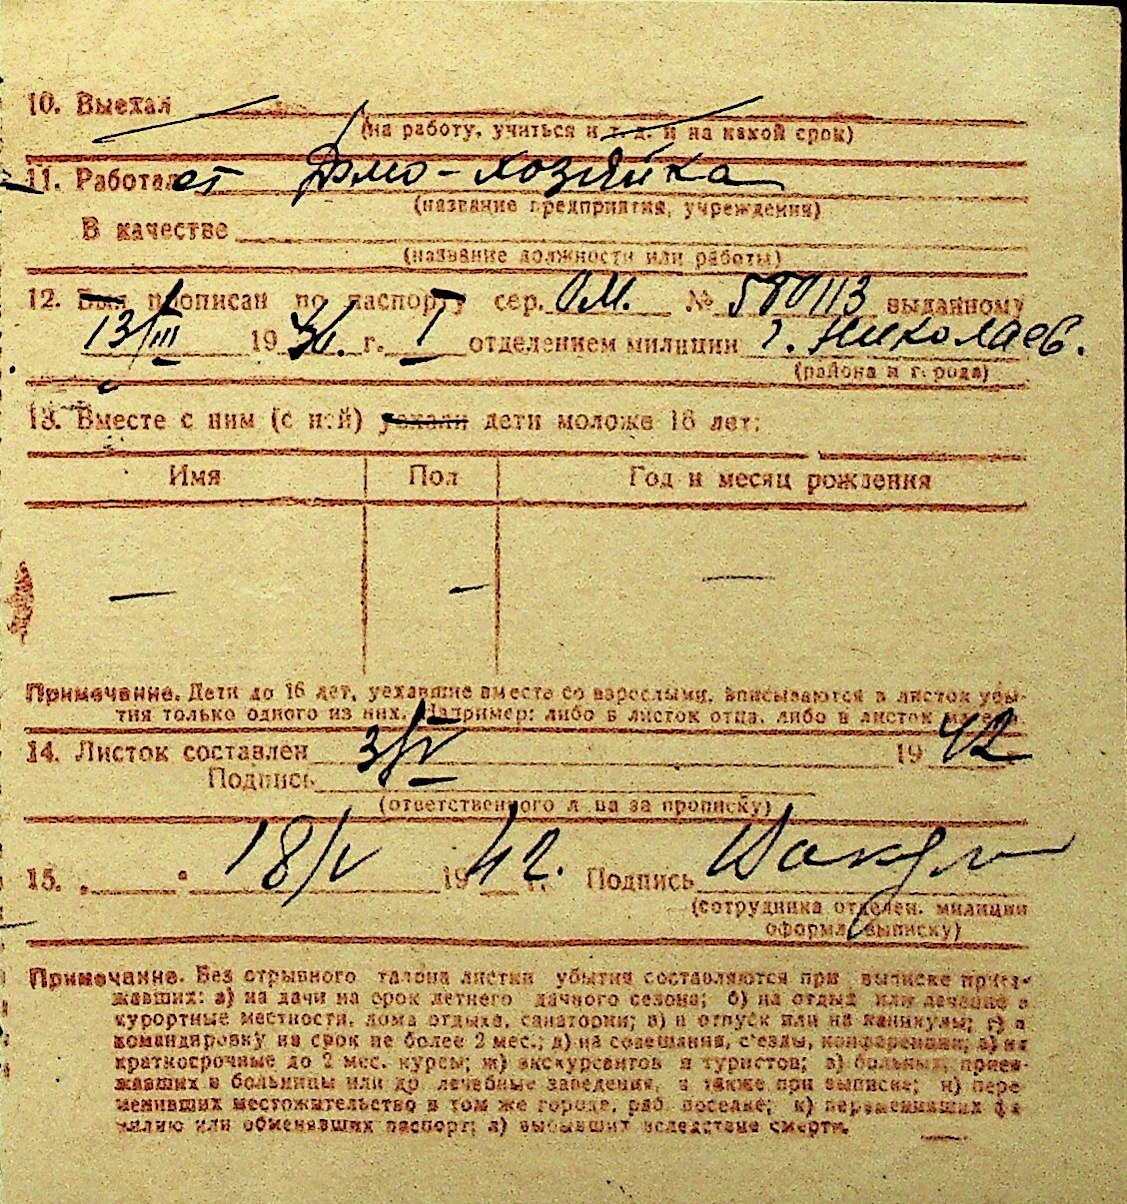 10. Выехал
(на работу, учиться и т. д. и на какой срок)
11. Работает Домо-хозяйка
(название предприятия, учреждения)
В качестве
(название должности или работы)
12. Был прописан по паспорту сер. ОМ. № 580113 выданному
13/III 19 г. I отделением милиции г. Николаев.
(района и города)
13. Вместе с ним (с ней) уехали дети моложе 16 лет:
Имя Пол Год и месяц рождения
— — —
Примечание. Дети до 16 лет, уехавшие вместе со взрослыми, вписываются в листок убы-
тия только одного из них. Например: либо в листок отца, либо в листок матери.
14. Листок составлен 3/V 1942
Подпись
(ответственного лица за прописку)
15. 18/V 1942. г. Подпись
(сотрудника отделен. милиции
оформл. выписку)
Примечание. Без отрывного талона листки убытия составляются при выписке приез-
жавших: а) на дачи на срок летнего дачного сезона; б) на отдых или лечение в
курортные местности, дома отдыха, санатории; в) в отпуск или на каникулы; г) в
командировку на срок не более 2 мес.; д) на совещания, с'езды, конференции; е) на
краткосрочные до 2 мес. курсы; ж) экскурсантов и туристов; з) больных, приез-
жавших в больницы или др лечебные заведения, а также при выписке; и) пере
менивших местожительство в том же городе, раб. поселке; к) переменивших фа
милию или обменявших паспорт; л) выбывших вследствие смерти.